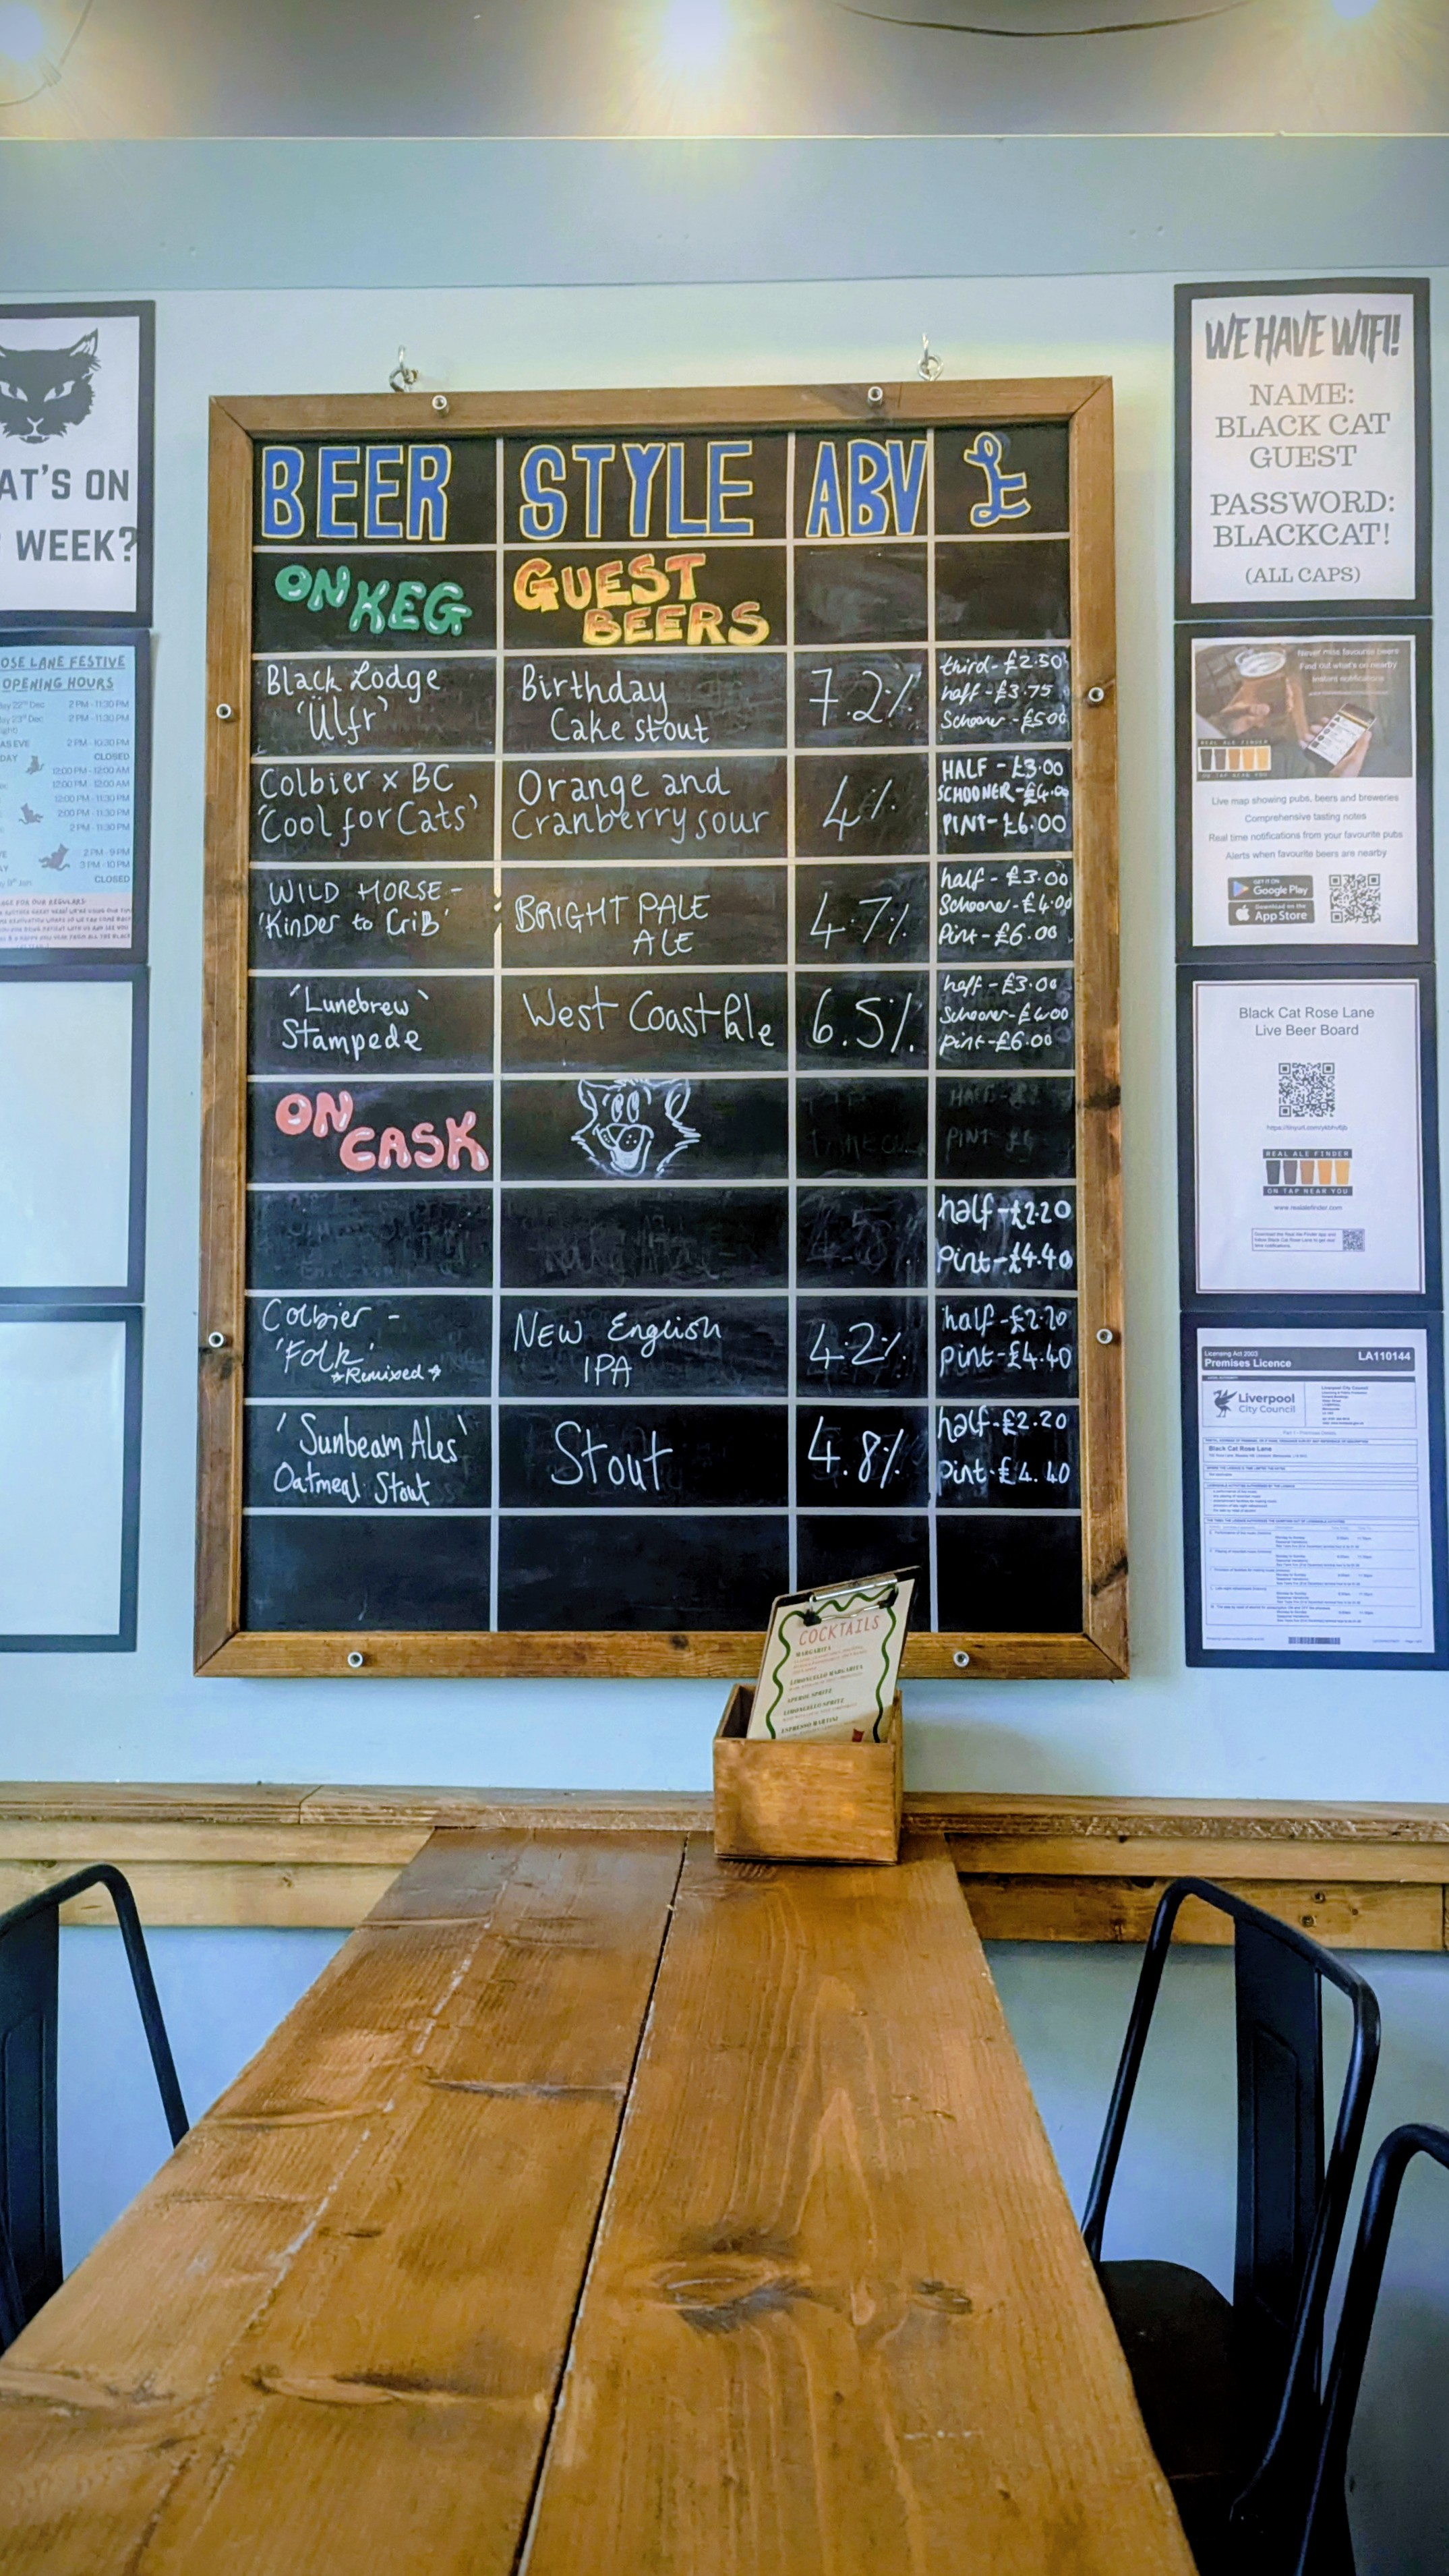 AT'S ON
WEEK?
OSE LANE FESTIVE
OPENING HOURS
22nd Dec 2 PM - 11:30 PM
23rd Dec 2 PM - 11:30 PM
AS EVE 2 PM - 10:30 PM
DAY CLOSED
12:00 PM - 12:00 AM
12:00 PM - 12:00 AM
12:00 PM - 11:30 PM
2:00 PM - 11:30 PM
2 PM - 11:30 PM
2 PM - 9 PM
3 PM - 10 PM
CLOSED
BEER STYLE ABV £
ON KEG
GUEST
BEERS
Black Lodge
'Ülfr'
Birthday
Cake stout
7.2%
third - £2.50
half - £3.75
Schooner - £5.00
Colbier x BC
'Cool for Cats'
Orange and
Cranberry sour
4%
HALF - £3.00
SCHOONER - £4.00
PINT - £6.00
WILD HORSE -
'Kinder to Crib'
BRIGHT PALE
ALE
4.7%
half - £3.00
Schooner - £4.00
Pint - £6.00
'Lunebrew'
Stampede
West Coast Pale
6.5%
half - £3.00
Schooner - £4.00
pint - £6.00
ON
CASK
half - £2.20
Pint - £4.40
Colbier -
'Folk'
Remixed
NEW English
IPA
4.2%
half - £2.20
pint - £4.40
'Sunbeam Ales'
Oatmeal Stout
Stout
4.8%
half - £2.20
pint - £4.40
COCKTAILS
MARGARITA
LIMONCELLO MARGARITA
APEROL SPRITZ
LIMONCELLO SPRITZ
ESPRESSO MARTINI
WE HAVE WIFI!
NAME:
BLACK CAT
GUEST
PASSWORD:
BLACKCAT!
(ALL CAPS)
Never miss favourite beers
Find out what's on nearby
Instant notifications
REAL ALE FINDER
ON TAP NEAR YOU
Live map showing pubs, beers and breweries
Comprehensive tasting notes
Real time notifications from your favourite pubs
Alerts when favourite beers are nearby
GET IT ON
Google Play
Download on the
App Store
Black Cat Rose Lane
Live Beer Board
REAL ALE FINDER
ON TAP NEAR YOU
www.realalefinder.com
Licensing Act 2003
Premises Licence LA110144
Liverpool
City Council
Liverpool City Council
Black Cat Rose Lane